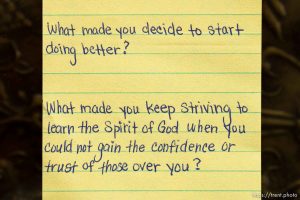 What made you decide to start
doing better?
What made you keep striving to
learn the Spirit of God when you
could not gain the confidence or
trust of those over you?